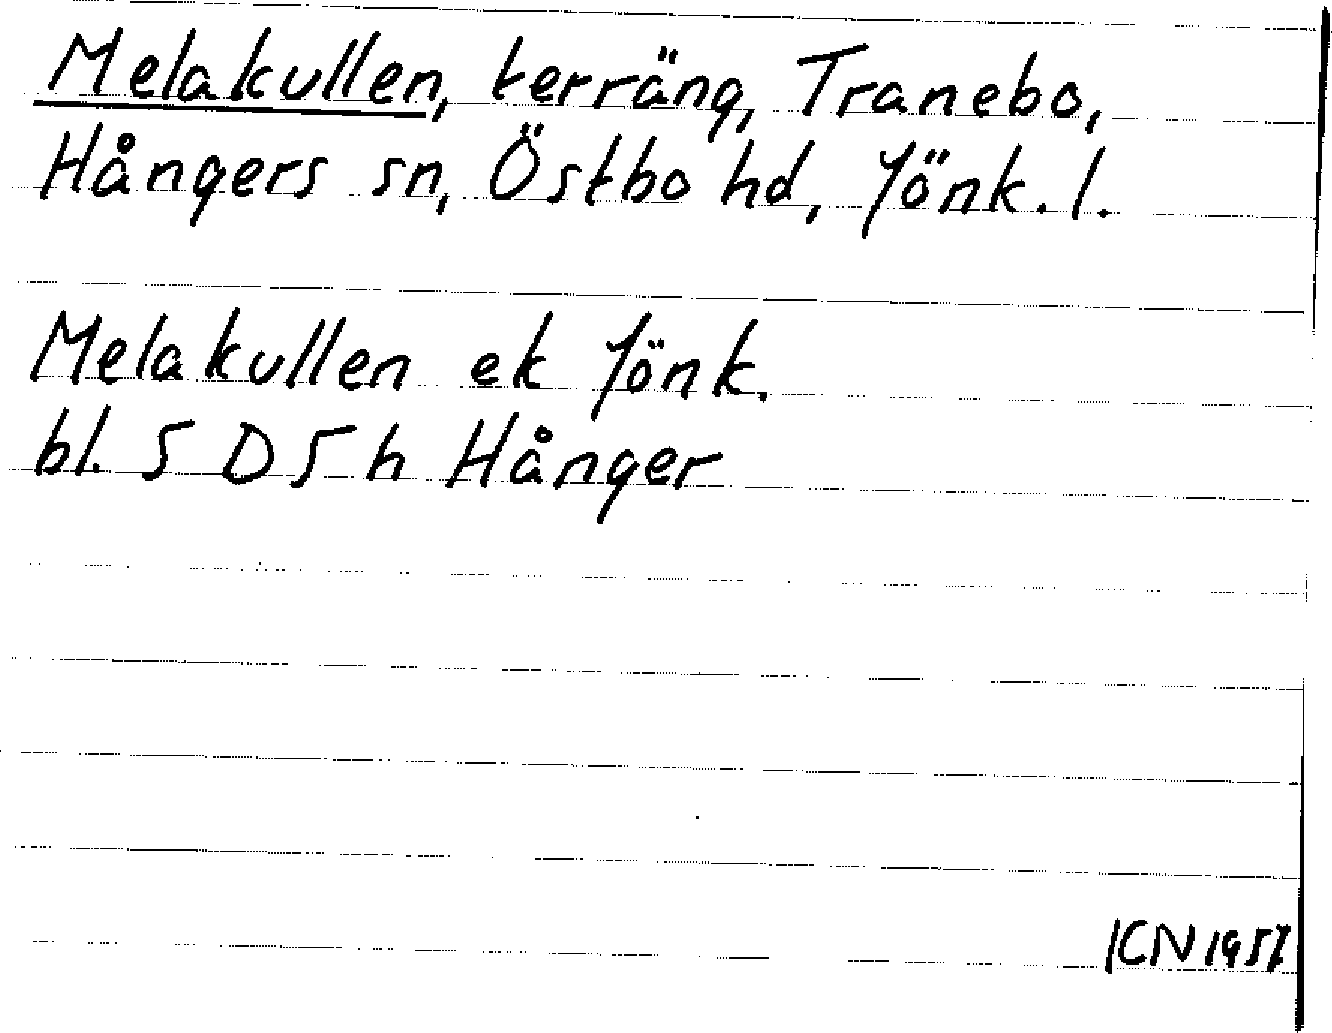 Melakullen, terräng, Tranebo,
Hångers sn, Östbo hd, Jönk. l.
Melakullen ek Jönk.
bl. 5 D 5 h Hånger
ICN 1957